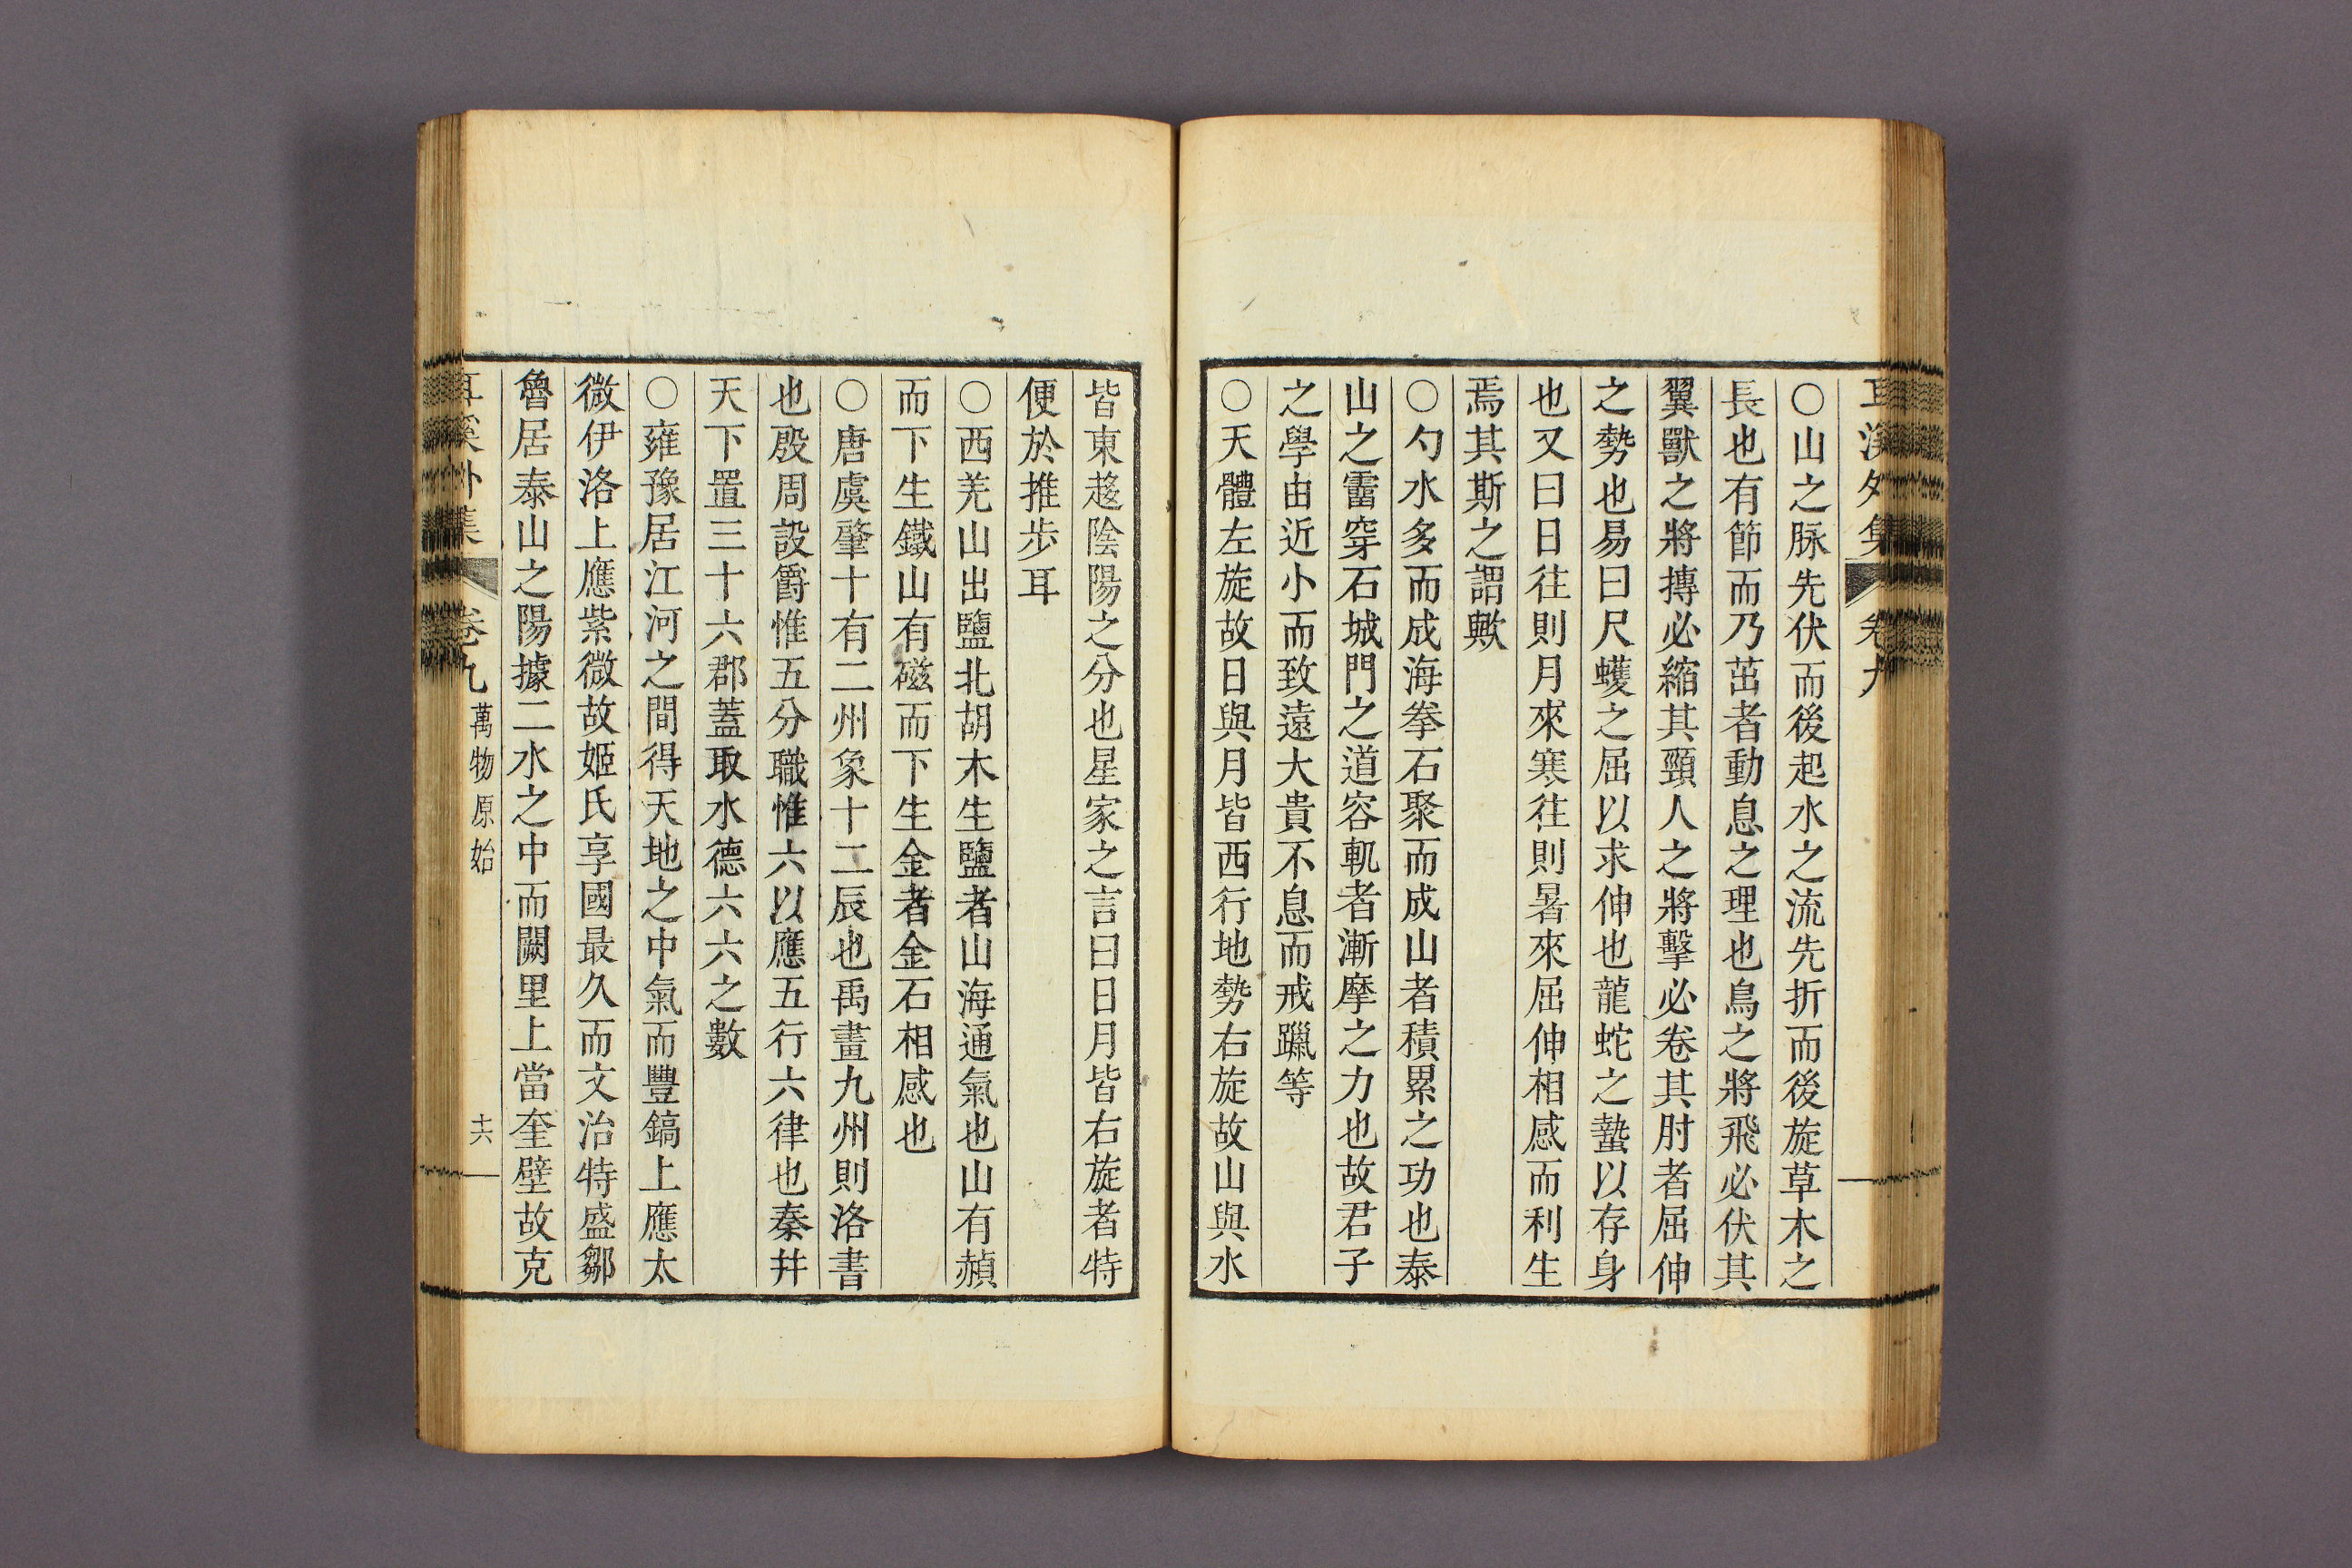 耳溪外集 卷九
○山之脉先伏而後起水之流先折而後旋草木之
長也有節而乃茁者動息之理也鳥之將飛必伏其
翼獸之將搏必縮其頸人之將擊必卷其肘者屈伸
之勢也易曰尺蠖之屈以求伸也龍蛇之蟄以存身
也又曰日往則月來寒往則暑來屈伸相感而利生
焉其斯之謂歟
○勺水多而成海拳石聚而成山者積累之功也泰
山之霤穿石城門之道容軌者漸摩之力也故君子
之學由近小而致遠大貴不息而戒躐等
○天體左旋故日與月皆西行地勢右旋故山與水
皆東趍陰陽之分也星家之言曰日月皆右旋者特
便於推步耳
○西羌山出鹽北胡木生鹽者山海通氣也山有赬
而下生鐵山有磁而下生金者金石相感也
○唐虞肇十有二州象十二辰也禹畫九州則洛書
也殷周設爵惟五分職惟六以應五行六律也秦幷
天下置三十六郡蓋取水德六六之數
○雍豫居江河之間得天地之中氣而豐鎬上應太
微伊洛上應紫微故姬氏享國最久而文治特盛鄒
魯居泰山之陽據二水之中而闕里上當奎壁故克
耳溪外集 卷九 萬物原始 十六